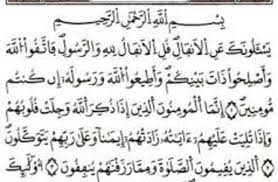 بِسْمِ اللَّهِ الرَّحْمَٰنِ الرَّحِيمِ
يَسْـَٔلُونَكَ عَنِ الْأَنفَالِ قُلِ الْأَنفَالُ لِلَّهِ وَالرَّسُولِ فَاتَّقُوا اللَّهَ
وَأَصْلِحُوا ذَاتَ بَيْنِكُمْ وَأَطِيعُوا اللَّهَ وَرَسُولَهُ إِن كُنتُم
مُّؤْمِنِينَ ۝١ إِنَّمَا الْمُؤْمِنُونَ الَّذِينَ إِذَا ذُكِرَ اللَّهُ وَجِلَتْ قُلُوبُهُمْ
وَإِذَا تُلِيَتْ عَلَيْهِمْ ءَايَٰتُهُ زَادَتْهُمْ إِيمَٰنًا وَعَلَىٰ رَبِّهِمْ يَتَوَكَّلُونَ
۝٢ الَّذِينَ يُقِيمُونَ الصَّلَوٰةَ وَمِمَّا رَزَقْنَٰهُمْ يُنفِقُونَ ۝٣ أُو۟لَٰٓئِكَ